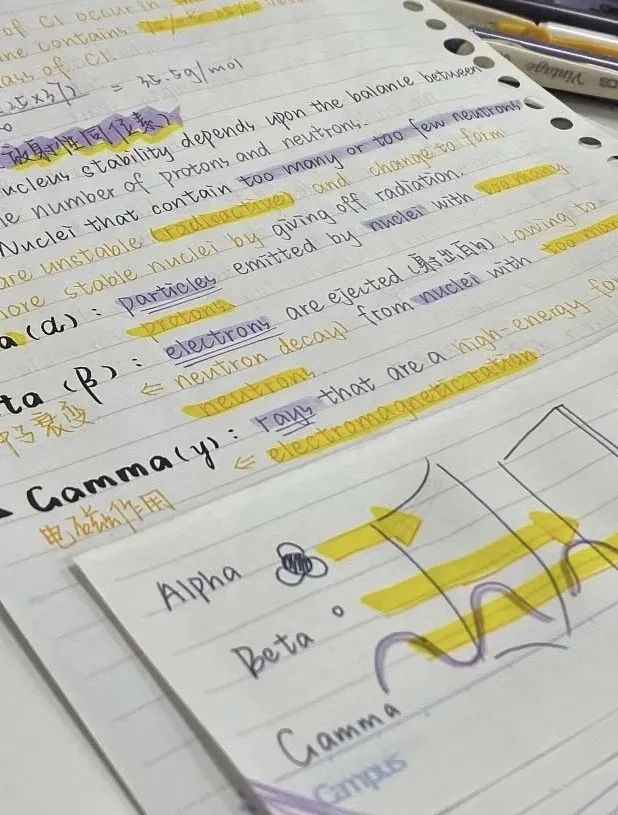 of Cl occur in
ne contains
ass of Cl.
.25×37) = 35.5g/mol
放射性同位素)
ucleus stability depends upon the balance between
he number of protons and neutrons.
Nuclei that contain too many or too few neutrons
are unstable (radioactive) and change to form
more stable nuclei by giving off radiation.
a (α) : particles emitted by nuclei with too many
protons
ta (β) : electrons are ejected (射出的) (owing to
← neutron decay) from nuclei with too man
衰变
neutrons.
Gamma (γ) : rays that are a high-energy fo
← electromagnetic ration
电磁作用
Alpha
Beta
Gamma
Campus
Vintage